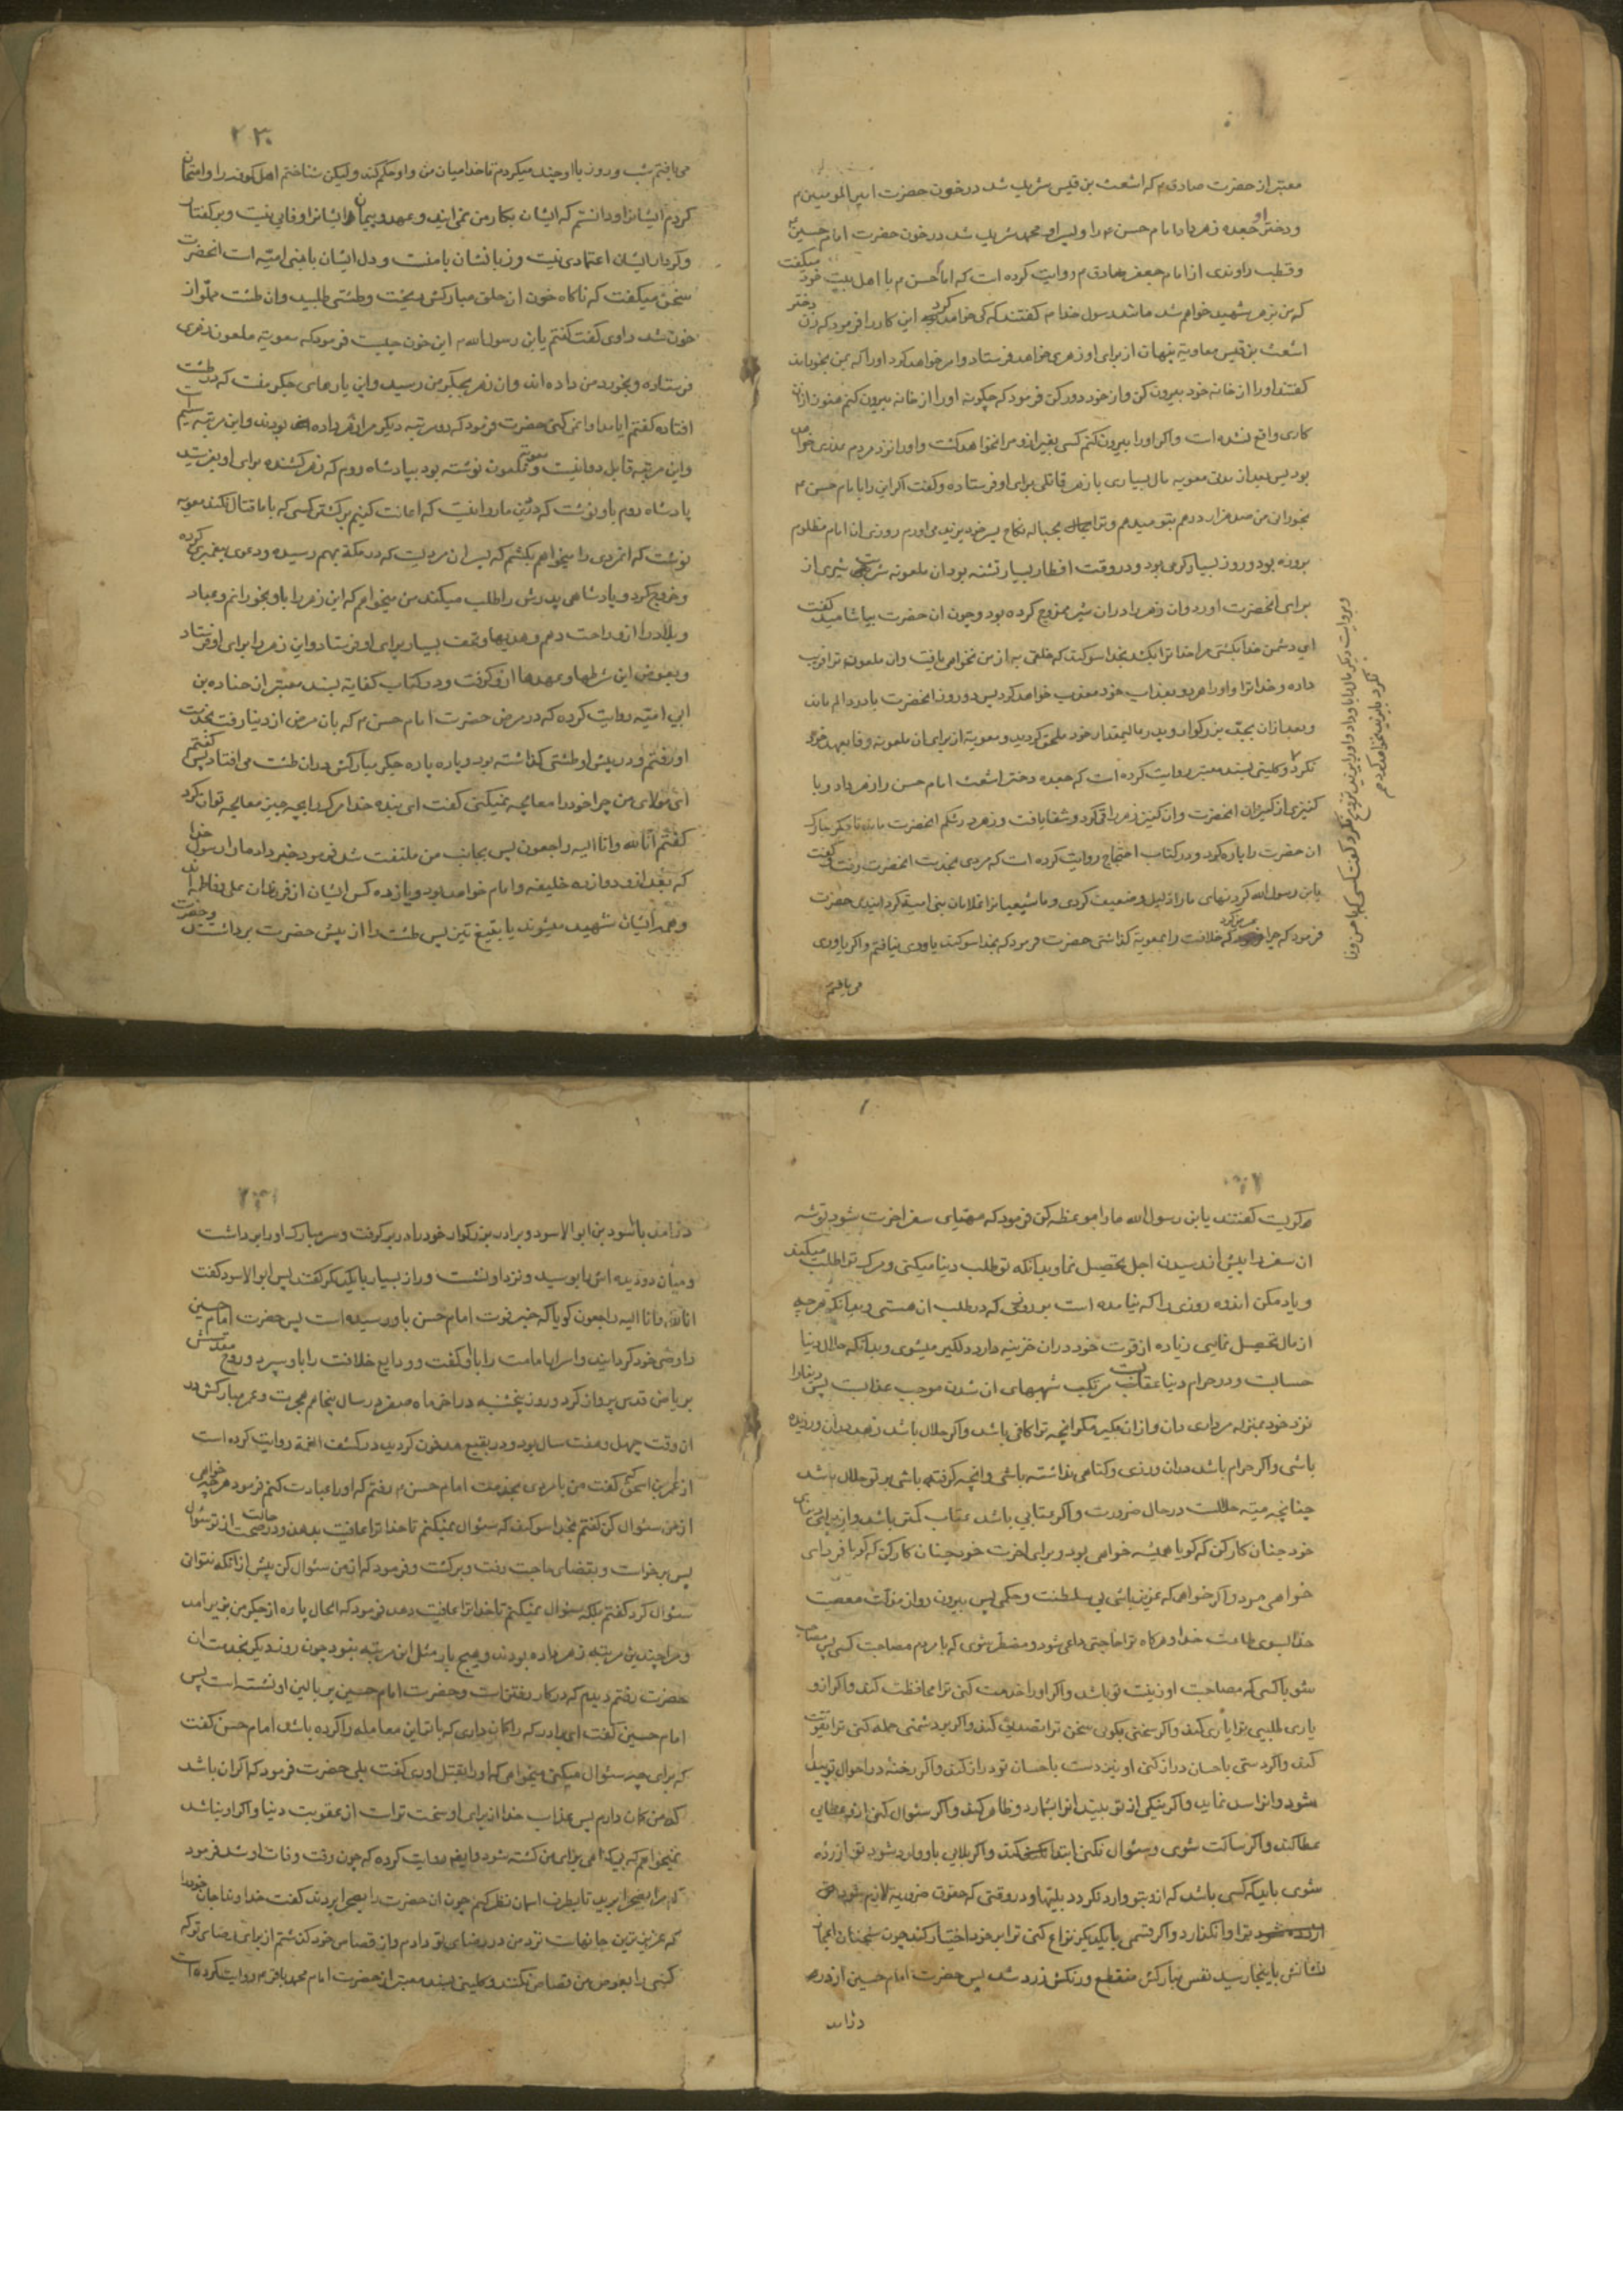 معتبر از حضرت صادق م که اشعث بن قیس شریک شد در خون حضرت امیر المومنین م
و دختر او جعده زهر داد امام حسن م را و پسر او محمد شریک شد در خون حضرت امام حسین م
و قطب راوندی از امام جعفر صادق م روایت کرده است که امام حسن م با اهل بیت خود میکفت
که من بزهر شهید خواهم شد مانند رسول خدا م کفتند که که خواهد کرد این کار را فرمود که زن دختر
اشعث بن قیس معاویه پنهان از برای او زهری خواهد فرستاد و امر خواهد کرد او را که بمن بخوراند
کفتند او را از خانه خود بیرون کن و از خود دور کن فرمود که چکونه او را از خانه بیرون کنم هنوز از ان
کاری واقع نشده است و اکر او را بیرون کنم کسی بغیر از و مرا نخواهد کشت و او را نزد مردم عذری خواهد
بود پس بعد از مدتی معویه مال بسیاری با زهر قاتلی برای او فرستاد و کفت اکر این را بامام حسن م
بخورانی من صد هزار درهم بتو میدهم و ترا بحباله نکاح پسر خود یزید می اورم روزی ان امام مظلوم
بروزه بود و روز بسیار کرمی بود و در وقت افطار بسیار تشنه بود ان ملعونه شربت شیری از
برای انحضرت اورد و ان زهر را در ان شیر ممزوج کرده بود و چون ان حضرت بیاشامید کفت
ای دشمن خدا بکشتی مرا خدا ترا بکشد بخدا سوکند که خلفی به از من نخواهی یافت و ان ملعونه ترا فریب
داده و خدا ترا و او را هر دو بعذاب خود معذب خواهد کرد پس دو روز انحضرت با درد و الم ماند
و بعد از ان بجد بزرکوار و پدر عالیمقدار خود ملحق کردید و معویه از برای ان ملعونه وفا بعهد خود
نکرد و کلینی بسند معتبر روایت کرده است که جعده دختر اشعث امام حسن را زهر داد و با
کنیزی از کنیزان انحضرت و ان کنیز زهر را قی کرد و شفا یافت و زهر در شکم انحضرت ماند تا جکر مبارک
ان حضرت را پاره کرد و در کتاب احتجاج روایت کرده است که مردی بخدمت انحضرت رفت و کفت
یابن رسول الله کردنهای ما را ذلیل و ضعیف کردی و ما شیعیان را غلامان بنی امیه کردانیدی حضرت
فرمود که چرا عرض کرد که خلافت را بمعویه کذاشتی حضرت فرمود که بخدا سوکند یاوری نیافتم و اکر یاوری
می یافتم
و بروایت دیکر مال را باو داد و او را بیزید تزویج نکرد و کفت کسی که با حسن وفا
نکرد با یزید نخواهد کرد
۲۳۰
می یافتم شب و روز با او جهد میکردم تا خدا میان من و او حکم کند ولیکن شناختم اهل کوفه را و امتحان
کردم ایشانرا و دانستم که ایشان بکار من نمی ایند و عهد و پیمان ایشانرا وفایی نیست و بر کفتار
و کردار ایشان اعتمادی نیست و زبانشان با منست و دل ایشان با بنی امیه است انحضرت
سخن میکفت که ناکاه خون از حلق مبارکش ریخت و طشتی طلبید و ان طشت مملو از
خون شد راوی کفت کفتم یابن رسول الله م این خون چیست فرمود که معویه ملعون زهری
فرستاده و بخورد من داده اند و ان زهر بجکر من رسید و این پارهای جکر منست که در طشت
افتاده کفتم ایا مداوا نمی کنی حضرت فرمود که دو مرتبه دیکر مرا زهر داده بودند و این مرتبه سیم است
و این مرتبه قابل دوا نیست و معویه ملعون نوشته بود بپادشاه روم که زهر کشنده برای او بفرستد
پادشاه روم باو نوشت که در دین ما روا نیست که اعانت کنیم بر کشتن کسی که با ما قتال نکند معویه
نوشت که انمردی را میخواهم بکشم که پسر ان مردیست که در مکه بهم رسیده و دعوی پیغمبری کرده
و خروج کرد و پادشاهی پدرش را طلب میکند من میخواهم که این زهر را باو بخورانم و عباد
و بلاد را از و راحت دهم و هدیها و تحف بسیار برای او فرستاد و این زهر را برای او فرستاد
و بعوض این شرطها و عهدها از و کرفت و در کتاب کفایه بسند معتبر از جناده بن
ابی امیه روایت کرده که در مرض حضرت امام حسن م که بان مرض از دنیا رفت بخدمت
او رفتم و در پیش او طشتی کذاشته بود و پاره پاره جکر مبارکش در ان طشت می افتاد پس کفتم
ای مولای من چرا خود را معالجه نمیکنی کفت ای بنده خدا مرک را بچه چیز معالجه توان کرد
کفتم انا لله و انا الیه راجعون پس بجانب من ملتفت شد فرمود خبر داد ما را رسول خدا
که بعد از و دوازده خلیفه و امام خواهند بود و یازده کس ایشان از فرزندان علی و فاطمه اند
و همه ایشان شهید میشوند یا بتیغ تیز پس طشت را از پیش حضرت برداشتند و حضرت
میکریست کفتند یابن رسول الله ما را موعظه کن فرمود که مهیای سفر اخرت شو و توشه
ان سفر را پیش از رسیدن اجل تحصیل نما و بدانکه تو طلب دنیا میکنی و مرک ترا طلب میکند
و یاد مکن اندوه روزی را که نیامده است بر روزی که در طلب ان هستی و بدانکه هر چه
از مال تحصیل نمایی زیاده از قوت خود در ان خزینه دار دیکری میشوی و بدانکه حلال دنیا
حسابست و در حرام دنیا عقابست مرتکب شبههای ان شدن موجب عذابست پس دنیا را
نزد خود بمنزله مرداری دان و از ان مکیر مکر انچه ترا کافی باشد و اکر حلال باشد زهد در ان ورزیده
باشی و اکر حرام باشد در ان وزری و کناهی نداشته باشی و انچه کرفته باشی بر تو حلال باشد
چنانچه میته حلالست در حال ضرورت و اکر عتابی باشد عتاب کمتر باشد و از برای دنیای
خود چنان کار کن که کویا همیشه خواهی بود و برای اخرت خود چنان کار کن که کویا فردا
خواهی مرد و اکر خواهی که عزیز باشی بی سلطنت و حکمی پس بیرون رو از مذلت معصیت
خدا بسوی طاعت خدا و هرکاه ترا حاجتی داعی شود و مضطر شوی که با مردم مصاحبت کنی پس مصاحب
شو با کسی که مصاحبت او زینت تو باشد و اکر او را خدمت کنی ترا محافظت کند و اکر از و
یاری طلبی ترا یاری کند و اکر سخنی بکویی سخن ترا تصدیق کند و اکر بر دشمنی حمله کنی ترا تقویت
کند و اکر دستی باحسان دراز کنی او نیز دست باحسان تو دراز کند و اکر رخنه در احوال تو پیدا
شود و انرا سد نماید و اکر نیکی از تو ببیند انرا بشمارد و ظاهر کند و اکر سئوال کنی از و عطایی
عطا کند و اکر ساکت شوی و سئوال نکنی ابتدا کند و اکر بلایی باو وارد شود تو ازرده
شوی باید که کسی باشد که از و بتو وارد نکردد بلیتها و در وقتی که حقوق ضروریه لازم شود
ترا وا نکذارد و اکر قسمی با یکدیکر نزاع کنی ترا بر خود اختیار کند چون سخنان اعجاز
نشانش باینجا رسید نفس مبارکش منقطع و رنکش زرد شد پس حضرت امام حسین از در
درامد
درامد با اسود بن ابو الاسود و برادر بزرکوار خود را در بر کرفت و سر مبارک او را بر داشت
و میان دو دیده اش را بوسید و نزد او نشست و راز بسیار با یکدیکر کفتند پس ابو الاسود کفت
انا لله و انا الیه راجعون کویا که خبر فوت امام حسن باو رسیده است پس حضرت امام حسین
را وصی خود کردانید و اسرار امامت را باو کفت و ودایع خلافت را باو سپرد و روح مقدسش
بریاض قدس پرواز کرد و روز پنجشنبه در اخر ماه صفر در سال پنجاهم هجرت و عمر مبارکش در
ان وقت چهل و هفت سال بود و در بقیع مدفون کردید در کشف الغمه روایت کرده است
از عمر بن اسحق کفت من با مردی بخدمت امام حسن م رفتم که او را عیادت کنم فرمود هر چه خواهی
از من سئوال کن کفتم بخدا سوکند که سئوال نمیکنم تا خدا ترا عافیت بدهد و در حالت صحت از تو سئوال
پس برخواست و بقضای حاجت رفت و برکشت و فرمود که از من سئوال کن پیش از انکه نتوانی
سئوال کرد کفتم بلکه سئوال نمیکنم تا خدا ترا عافیت دهد فرمود که الحال پاره از جکر من بزیر امد
و مرا چندین مرتبه زهر داده بودند و هیچ بار مثل این مرتبه نبود چون روز دیکر بخدمت ان
حضرت رفتم دیدم که در کار رفتنست و حضرت امام حسین بر بالین او نشسته است پس
امام حسین کفت ای برادر که را کمان داری که با تو این معامله را کرده باشد امام حسن کفت
که برای چه سئوال میکنی میخواهی که او را بقتل اوری کفت بلی حضرت فرمود که اکر ان باشد
که من کمان دارم پس عذاب خدا از برای او سخت تر است از عقوبت دنیا و اکر او نباشد
نمیخواهم که بیکناهی برای من کشته شود و ایضا روایت کرده که چون وقت وفات او شد فرمود
که مرا بصحرا برید تا بطرف اسمان نظر کنم چون ان حضرت را بصحرا بردند کفت خداوندا جان خود را
که عزیز ترین جانهاست نزد من در رضای تو دادم و از قصاص خود کذشتم از برای رضای تو که
کسی را بعوض من قصاص نکنند و کلینی بسند معتبر از حضرت امام محمد باقر م روایت کرده است